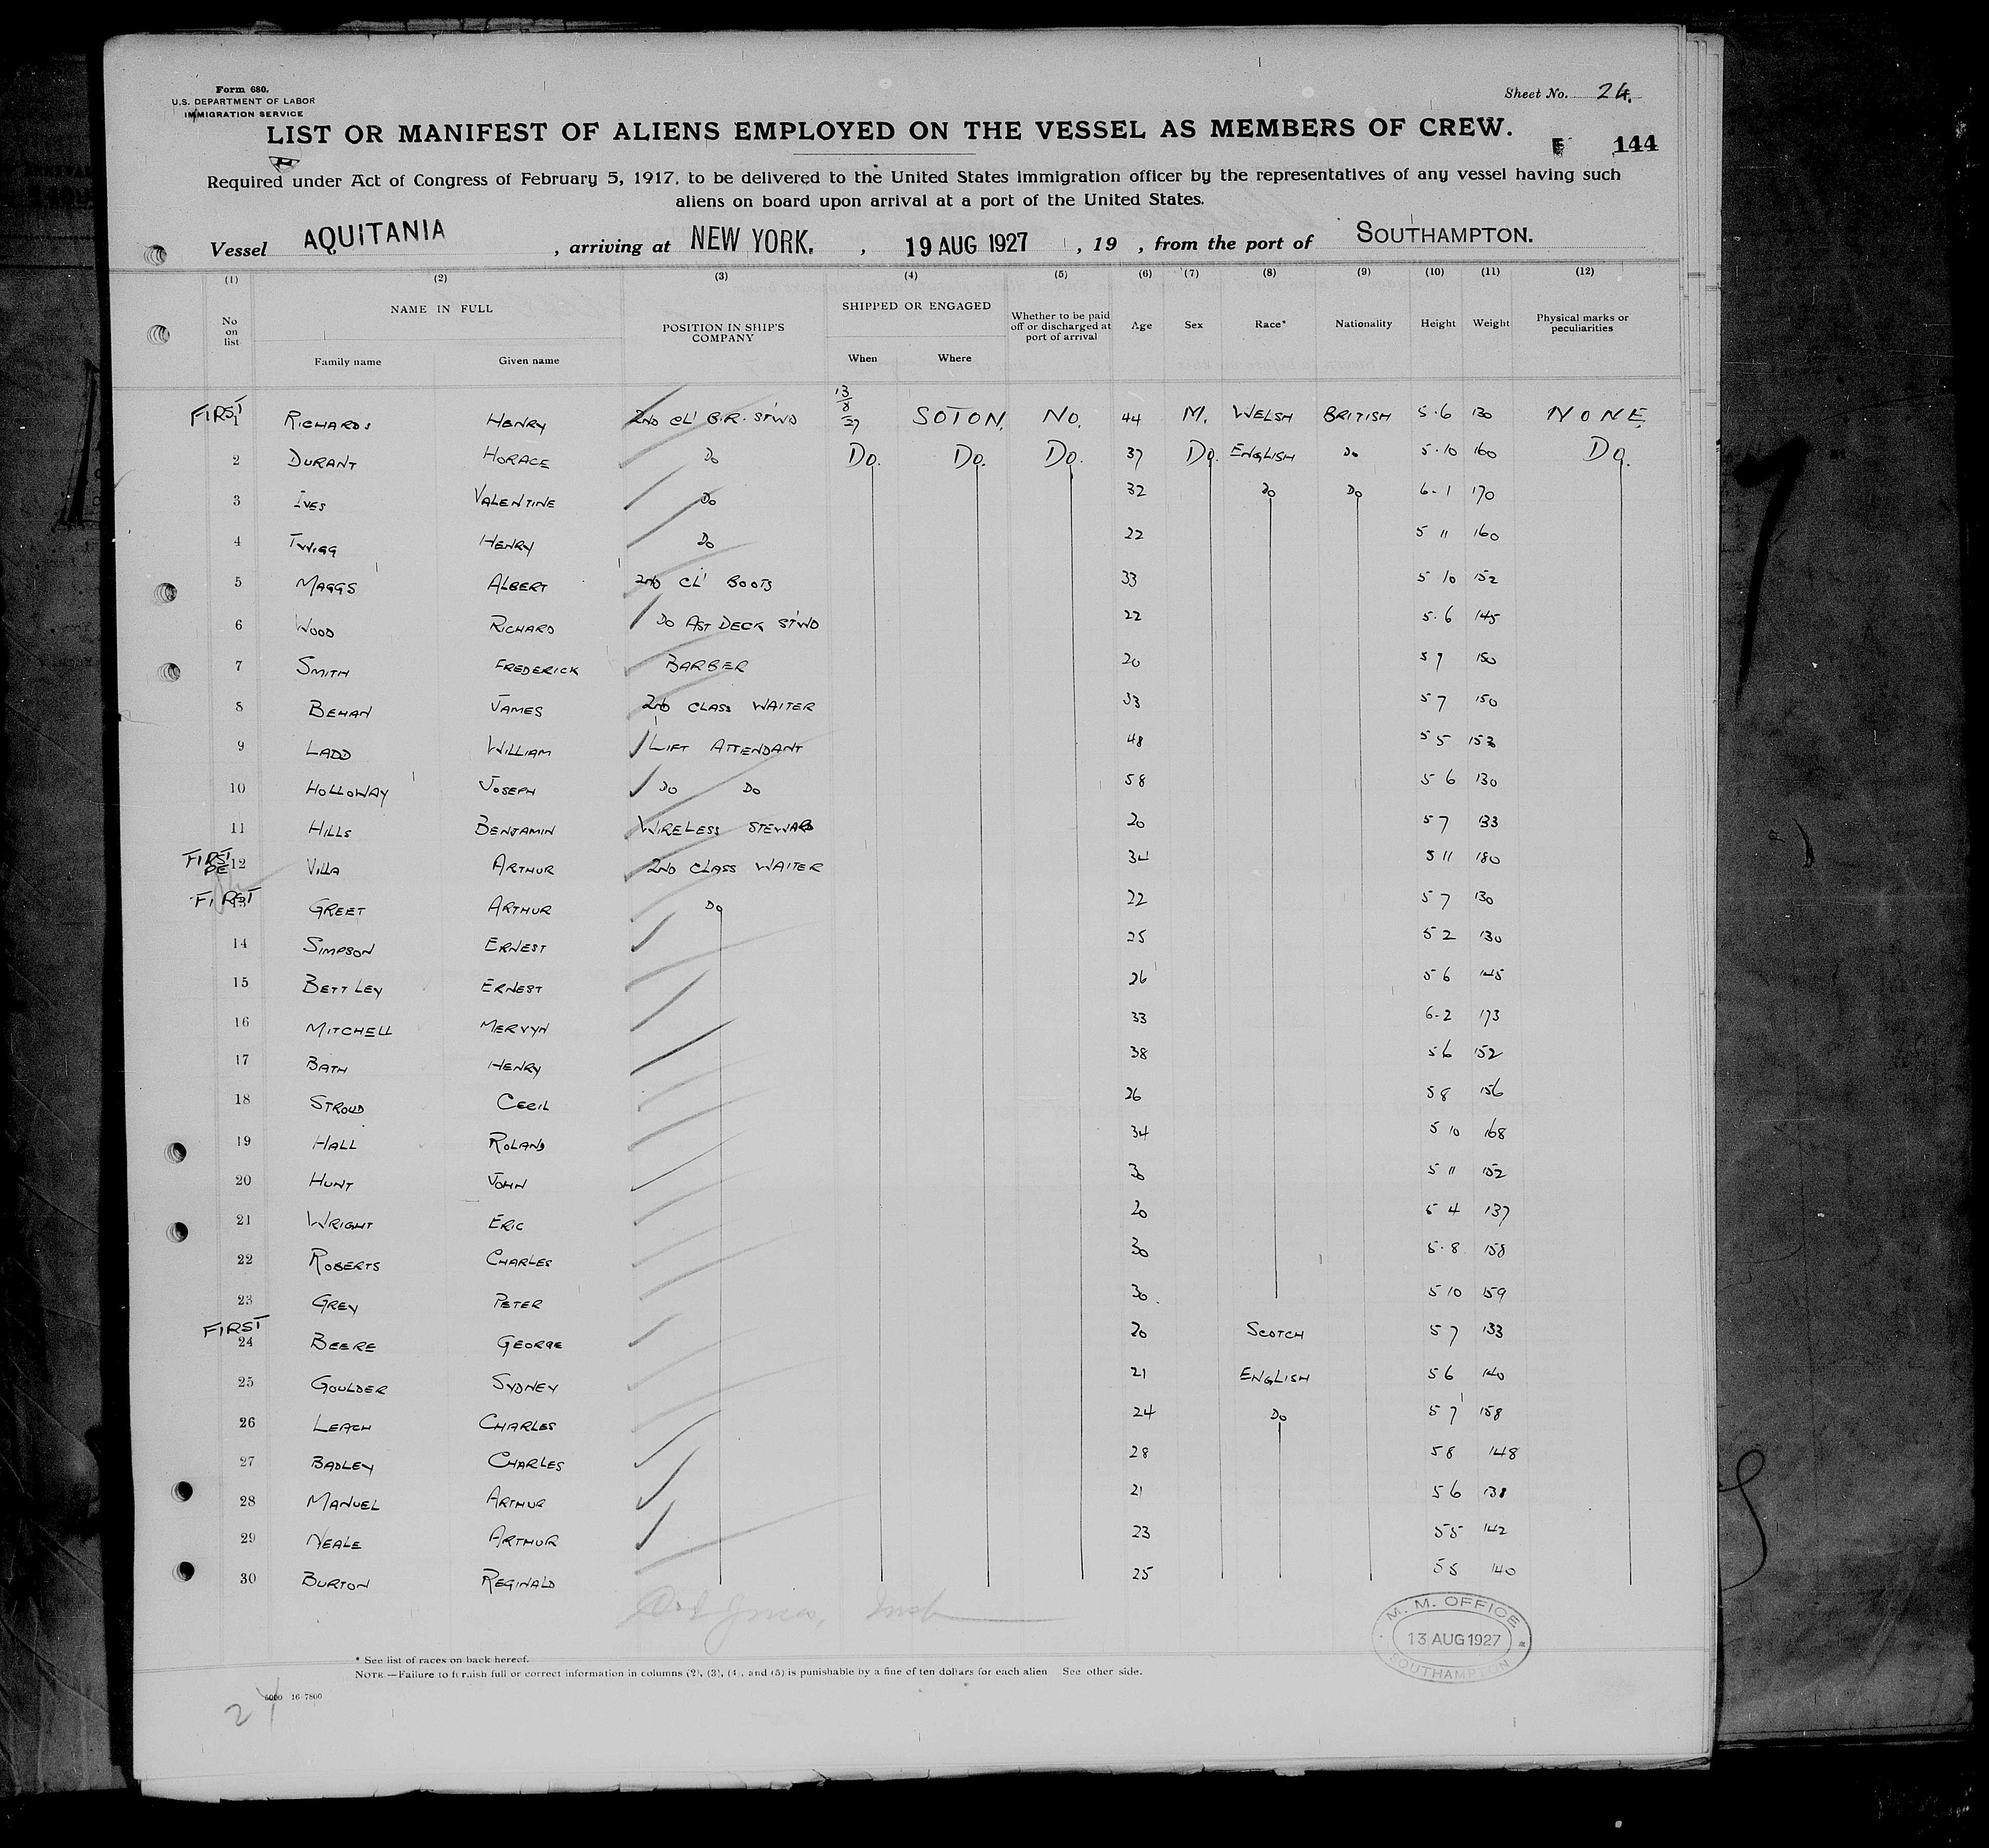 Form 680.
U.S. DEPARTMENT OF LABOR
IMMIGRATION SERVICE
Sheet No. 24.
LIST OR MANIFEST OF ALIENS EMPLOYED ON THE VESSEL AS MEMBERS OF CREW.
144
Required under Act of Congress of February 5, 1917, to be delivered to the United States immigration officer by the representatives of any vessel having such
aliens on board upon arrival at a port of the United States.
Vessel AQUITANIA, arriving at NEW YORK., 19 AUG 1927, 19 , from the port of SOUTHAMPTON.
(1) (2) (3) (4) (5) (6) (7) (8) (9) (10) (11) (12)
No on list NAME IN FULL Family name Given name POSITION IN SHIP'S COMPANY SHIPPED OR ENGAGED When Where Whether to be paid off or discharged at port of arrival Age Sex Race* Nationality Height Weight Physical marks or peculiarities
FIRST 1 RICHARDS HENRY 2ND CL' B.R. ST'WD 13/8/27 SOTON. NO. 44 M. WELSH BRITISH 5.6 130 NONE
2 DURANT HORACE DO DO. DO. DO. 37 DO. ENGLISH DO 5.10 160 DO.
3 IVES VALENTINE DO 32 DO DO 6-1 170
4 TWIGG HENRY DO 22 5 11 160
5 MAGGS ALBERT 2ND CL' BOOTS 33 5 10 152
6 WOOD RICHARD DO AST DECK ST'WD 22 5.6 145
7 SMITH FREDERICK BARBER 20 5 7 150
8 BEHAN JAMES 2ND CLASS WAITER 33 5 7 150
9 LADD WILLIAM LIFT ATTENDANT 48 5 5 153
10 HOLLOWAY JOSEPH DO DO 58 5 6 130
11 HILLS BENJAMIN WIRELESS STEWARD 20 5 7 133
FIRST 12 VILLA ARTHUR 2ND CLASS WAITER 34 5 11 180
FIRST 13 GREET ARTHUR DO 22 5 7 130
14 SIMPSON ERNEST 25 5 2 130
15 BETTLEY ERNEST 26 5 6 145
16 MITCHELL MERVYN 33 6-2 173
17 BATH HENRY 38 5 6 152
18 STROUD CECIL 26 5 8 156
19 HALL ROLAND 34 5 10 168
20 HUNT JOHN 30 5 11 152
21 WRIGHT ERIC 20 5 4 137
22 ROBERTS CHARLES 30 5.8 158
23 GREY PETER 30 5 10 159
FIRST 24 BEERE GEORGE 20 SCOTCH 5 7 133
25 GOULDER SYDNEY 21 ENGLISH 5 6 140
26 LEACH CHARLES 24 DO 5 7 158
27 BADLEY CHARLES 28 5 8 148
28 MANUEL ARTHUR 21 5 6 138
29 NEALE ARTHUR 23 5 5 142
30 BURTON REGINALD 25 5 5 140
M. M. OFFICE
13 AUG 1927
SOUTHAMPTON
* See list of races on back hereof.
NOTE.—Failure to furnish full or correct information in columns (2), (3), (4), and (5) is punishable by a fine of ten dollars for each alien See other side.
16-7800
24